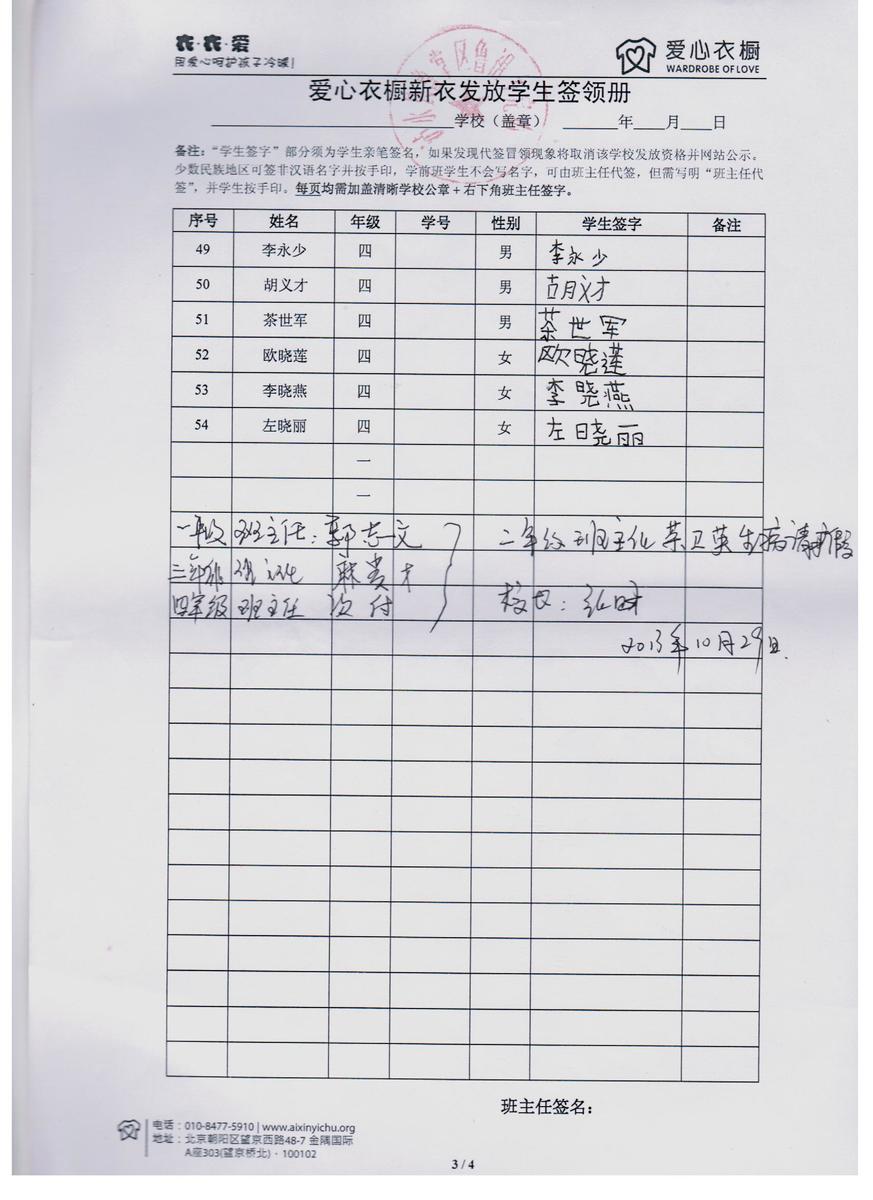 衣·衣·爱
用爱心呵护孩子冷暖!
爱心衣橱
WARDROBE OF LOVE
爱心衣橱新衣发放学生签领册
学校（盖章） 年 月 日
备注：“学生签字”部分须为学生亲笔签名，如果发现代签冒领现象将取消该学校发放资格并网站公示。
少数民族地区可签非汉语名字并按手印，学前班学生不会写名字，可由班主任代签，但需写明“班主任代
签”，并学生按手印。每页均需加盖清晰学校公章+右下角班主任签字。
序号 姓名 年级 学号 性别 学生签字 备注
49 李永少 四 男 李永少
50 胡义才 四 男 胡义才
51 茶世军 四 男 茶世军
52 欧晓莲 四 女 欧晓莲
53 李晓燕 四 女 李晓燕
54 左晓丽 四 女 左晓丽
一
一
一年级班主任：郭志文 二年级班主任茶卫英生病请假
三年级班主任
四年级班主任 校长：
2013年10月29日.
班主任签名：
电话：010-8477-5910 | www.aixinyichu.org
地址：北京朝阳区望京西路48-7 金隅国际
A座303(望京桥北)·100102
3 / 4